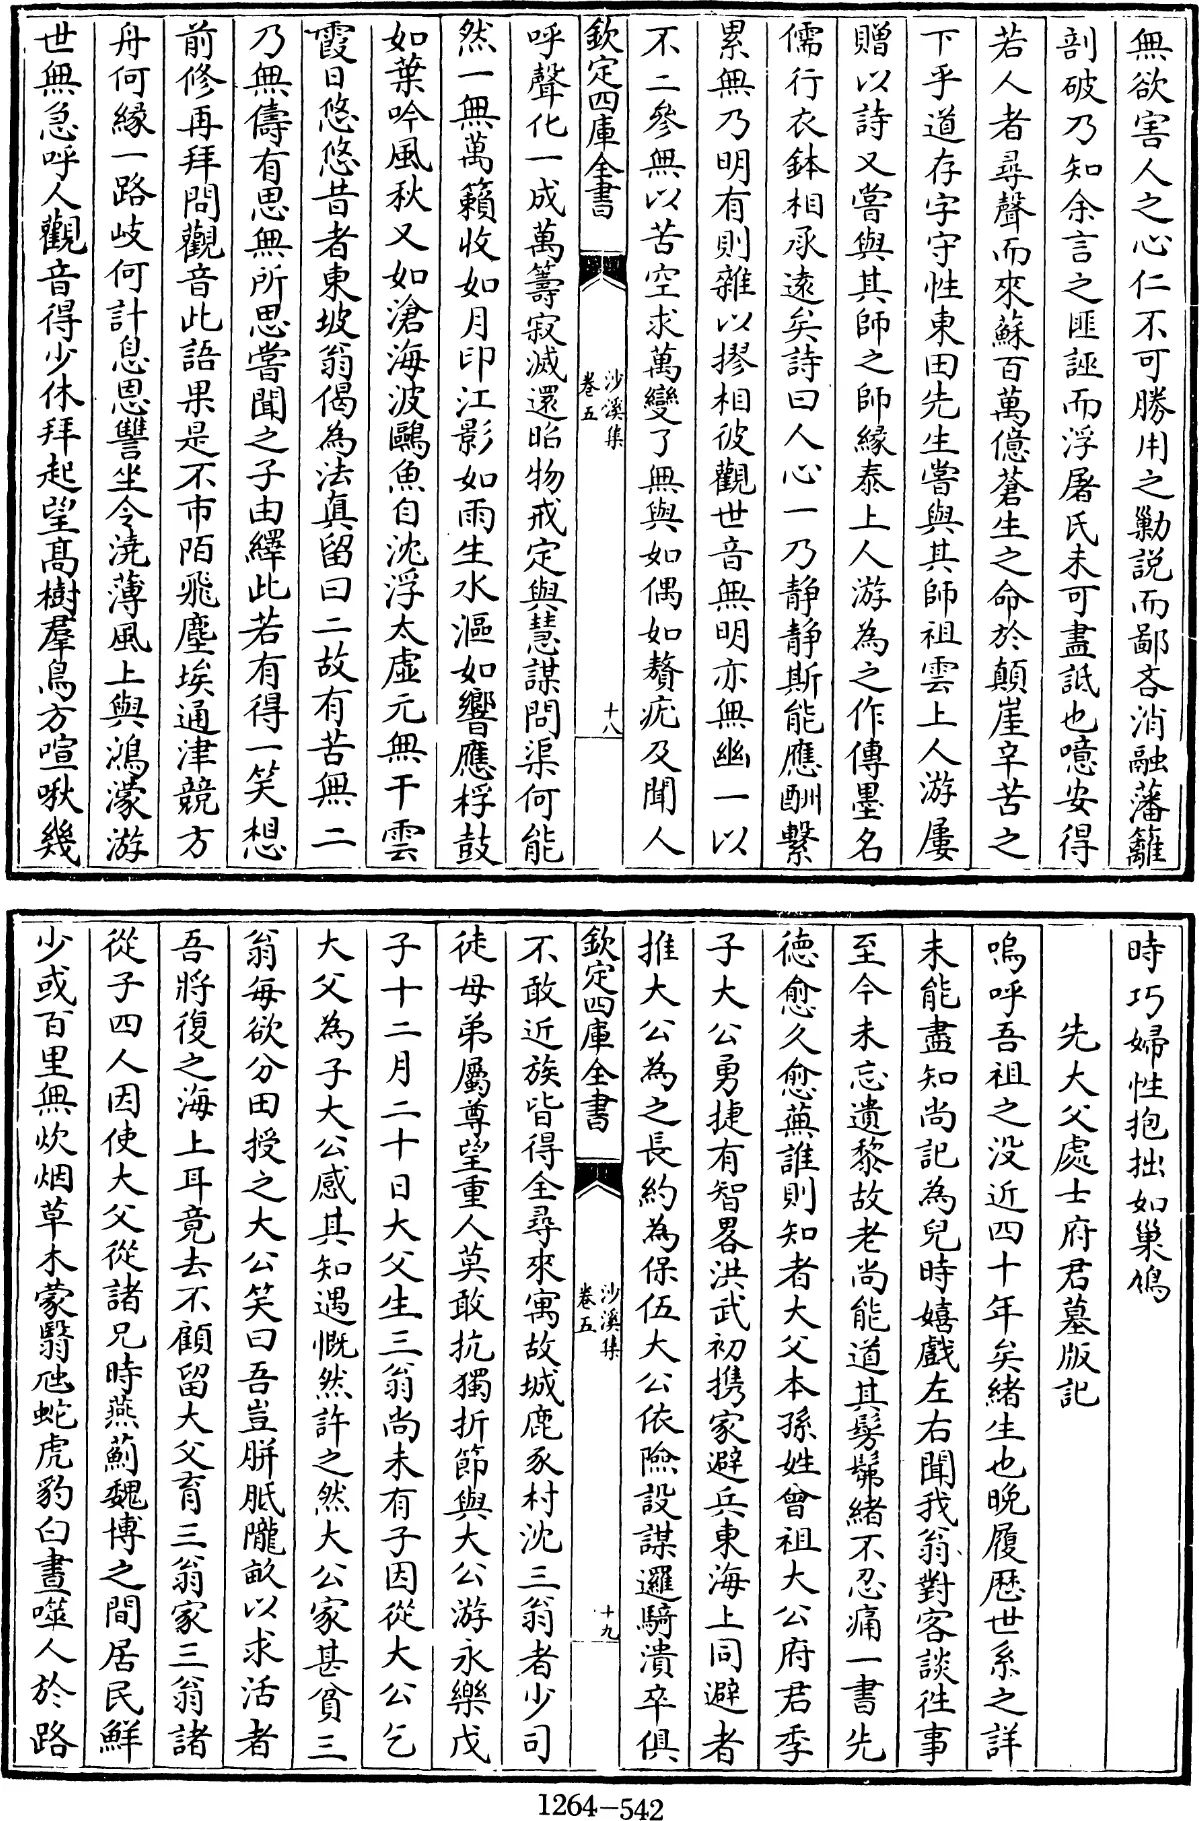 無欲害人之心仁不可勝用之勦説而鄙吝消融藩籬
剖破乃知余言之匪誣而浮屠氏未可盡詆也噫安得
若人者尋聲而來蘇百萬億蒼生之命於顛崖辛苦之
下乎道存字守性東田先生嘗與其師祖雲上人游屢
贈以詩又嘗與其師之師緣泰上人游為之作傳墨名
儒行衣鉢相承遠矣詩曰人心一乃靜靜斯能應酬繫
累無乃明有則雜以摎相彼觀世音無明亦無幽一以
不二參無以苦空求萬變了無與如偶如贅疣及聞人
欽定四庫全書
沙溪集
卷五
十八
呼聲化一成萬籌寂滅還昭物戒定與慧謀問渠何能
然一無萬籟收如月印江影如雨生水漚如響應桴鼓
如葉吟風秋又如滄海波鷗魚自沈浮太虛元無干雲
霞日悠悠昔者東坡翁偈為法真留曰二故有苦無二
乃無儔有思無所思嘗聞之子由繹此若有得一笑想
前修再拜問觀音此語果是不市陌飛塵埃通津競方
舟何緣一路岐何計息恩讐坐令澆薄風上與鴻濛游
世無急呼人觀音得少休拜起望髙樹羣鳥方喧啾幾
時巧婦性抱拙如巢鳩
先大父處士府君墓版記
嗚呼吾祖之没近四十年矣緒生也晚履歴世系之詳
未能盡知尚記為兒時嬉戲左右聞我翁對客談徃事
至今未忘遺黎故老尚能道其髣髴緒不忍痛一書先
德愈久愈蕪誰則知者大父本孫姓曾祖大公府君季
子大公勇捷有智畧洪武初携家避兵東海上同避者
推大公為之長約為保伍大公依險設謀邏騎潰卒俱
欽定四庫全書
沙溪集
卷五
十九
不敢近族皆得全尋來寓故城鹿豕村沈三翁者少司
徒母弟屬尊望重人莫敢抗獨折節與大公游永樂戊
子十二月二十日大父生三翁尚未有子因從大公乞
大父為子大公感其知遇慨然許之然大公家甚貧三
翁每欲分田授之大公笑曰吾豈胼胝隴畝以求活者
吾將復之海上耳竟去不顧留大父育三翁家三翁諸
從子四人因使大父從諸兄時燕薊魏博之間居民鮮
少或百里無炊烟草木蒙翳虺蛇虎豹白晝噬人於路
1264-542